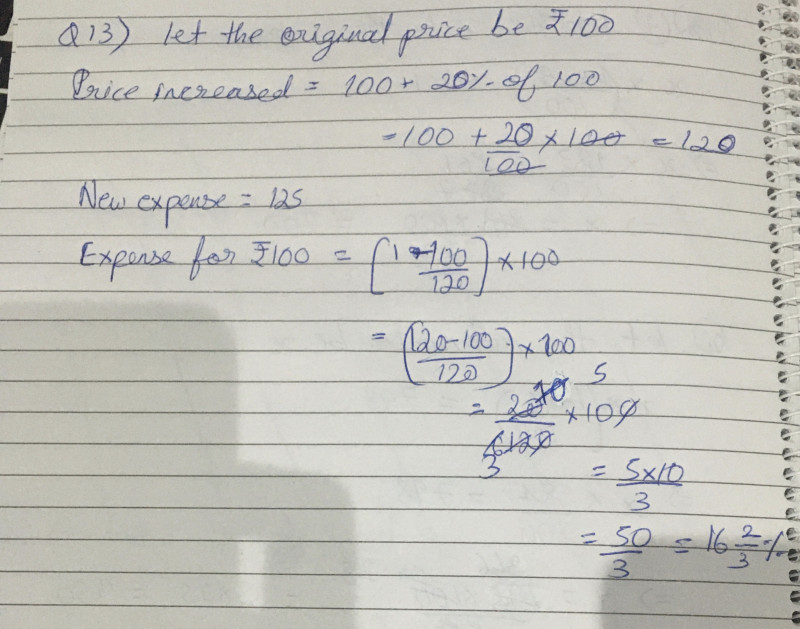 Q13) let the original price be ₹100
Price increased = 100 + 20% of 100
= 100 + 20/100 × 100 = 120
New expense = 125
Expense for ₹100 = [1 - 100/120] × 100
= (120-100/120) × 100
= 20/120 × 100 10 5 6 3
= 5×10/3
= 50/3 = 16 2/3 %